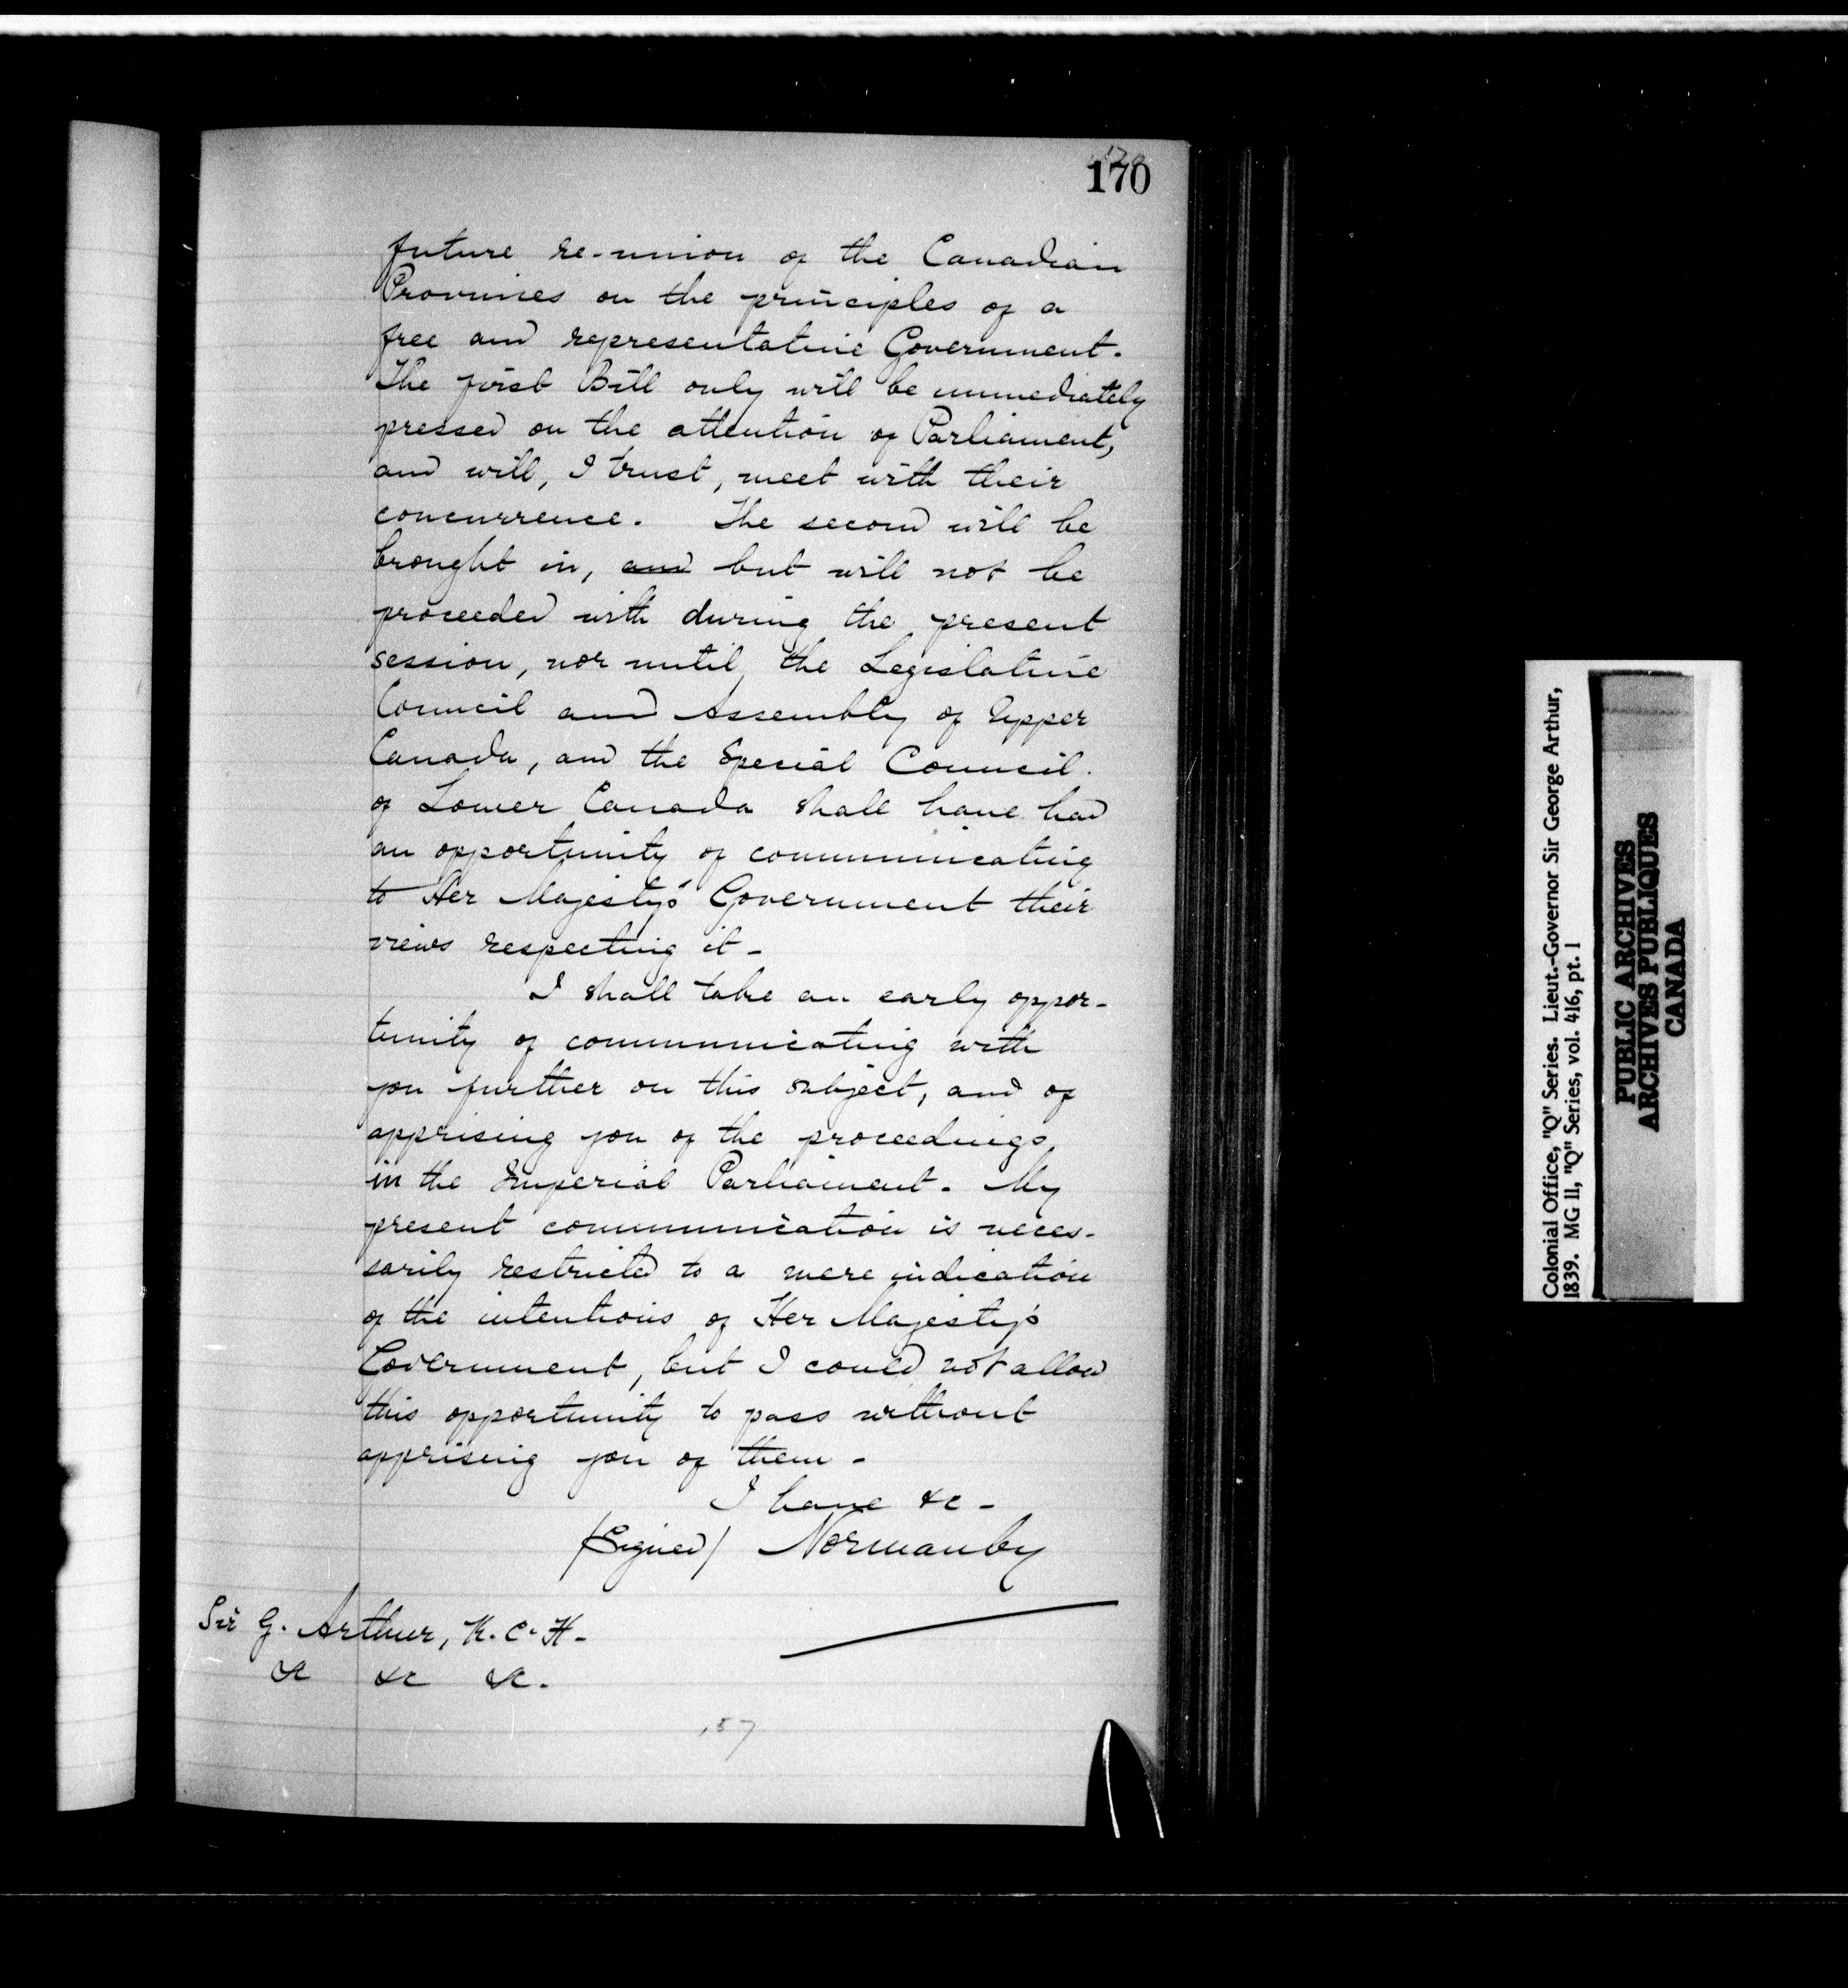 170
future re-union of the Canadian
Provinces on the principles of a
free and representative Government.
The first Bill only will be immediately
pressed on the attention of Parliament,
and will, I trust, meet with their
concurrence. The second will be
brought in, and but will not be
proceeded with during the present
session, nor until the Legislative
Council and Assembly of Upper
Canada, and the Special Council
of Lower Canada shall have had
an opportunity of communicating
to Her Majesty's Government their
views respecting it -
I shall take an early oppor-
tunity of communicating with
you further on this subject, and of
apprising you of the proceedings
in the Imperial Parliament. My
present communication is neces-
sarily restricted to a mere indication
of the intentions of Her Majesty's
Government, but I could not allow
this opportunity to pass without
apprising you of them -
I have &c -
(Signed) Normanby
Sir G. Arthur, K.C.H.
&c &c &c.
157
Colonial Office, "Q" Series. Lieut.-Governor Sir George Arthur,
1839. MG 11, "Q" Series, vol. 416, pt. 1
PUBLIC ARCHIVES
ARCHIVES PUBLIQUES
CANADA